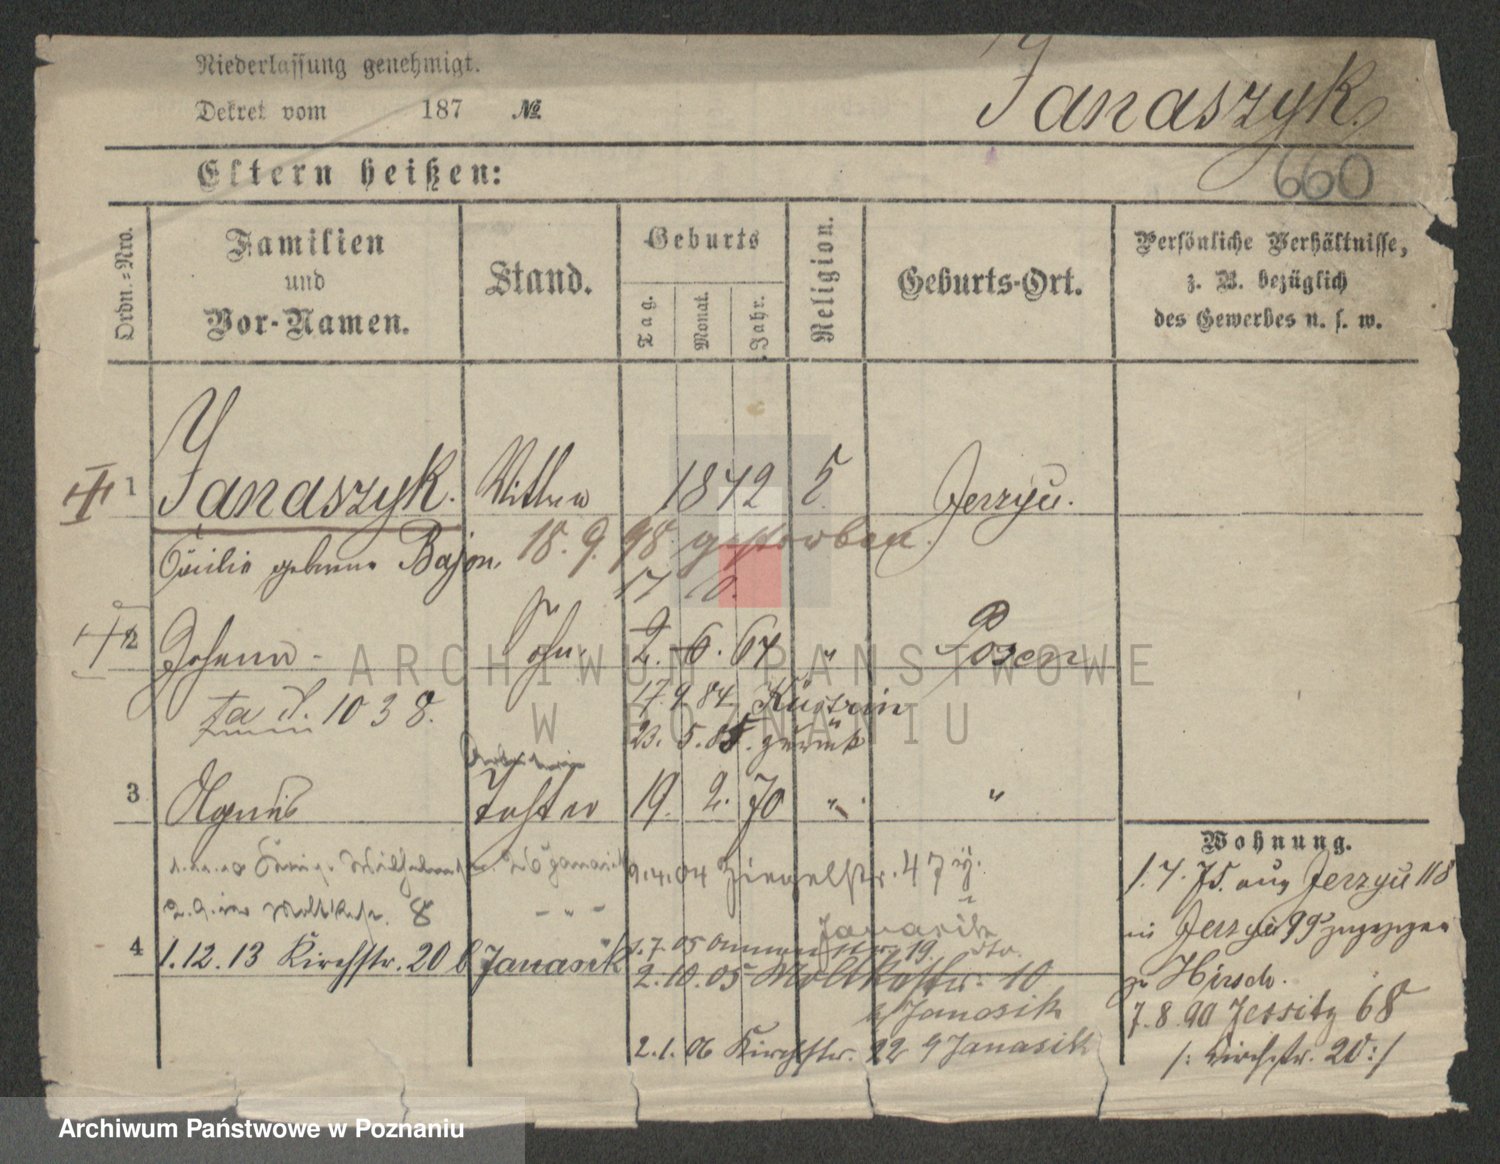 Niederlassung genehmigt.
Dekret vom 187 №
Janaszyk.
660
Eltern heißen:
Ordn.-Nro.
Familien
und
Vor-Namen.
Stand.
Geburts
Tag.
Monat.
Jahr.
Religion.
Geburts-Ort.
Persönliche Verhältnisse,
z. B. bezüglich
des Gewerbes u. s. w.
1 Janaszyk. Wittwe 1842 Jerzyce.
Cäcilie geborene Bajon, 18. 9. 98. gestorben.
2 Johann Sohn 2. 6. 67 " Posen
1038. 17. 9. 84. Küstrin
23. 5. 85. zurück
3 Agnes Tochter 19. 2. 70 " "
9.4.04 Ziegelstr. 47
8 - " -
Janasik
4 1.12.13 Kirchstr. 20 b Janasik 1.7.05 19.
2.10.05 Moltkestr. 10
b/ Janasik
2.1.06 Kirchstr. 22 Janasik
Wohnung.
1. 7. 75. aus Jerzyce 118
in Jerzyce 99 zugezogen
zu Hirsch.
7. 8. 90 Jersitz 68
/: Kirchstr. 20 :/
ARCHIWUM PAŃSTWOWE
W POZNANIU
Archiwum Państwowe w Poznaniu